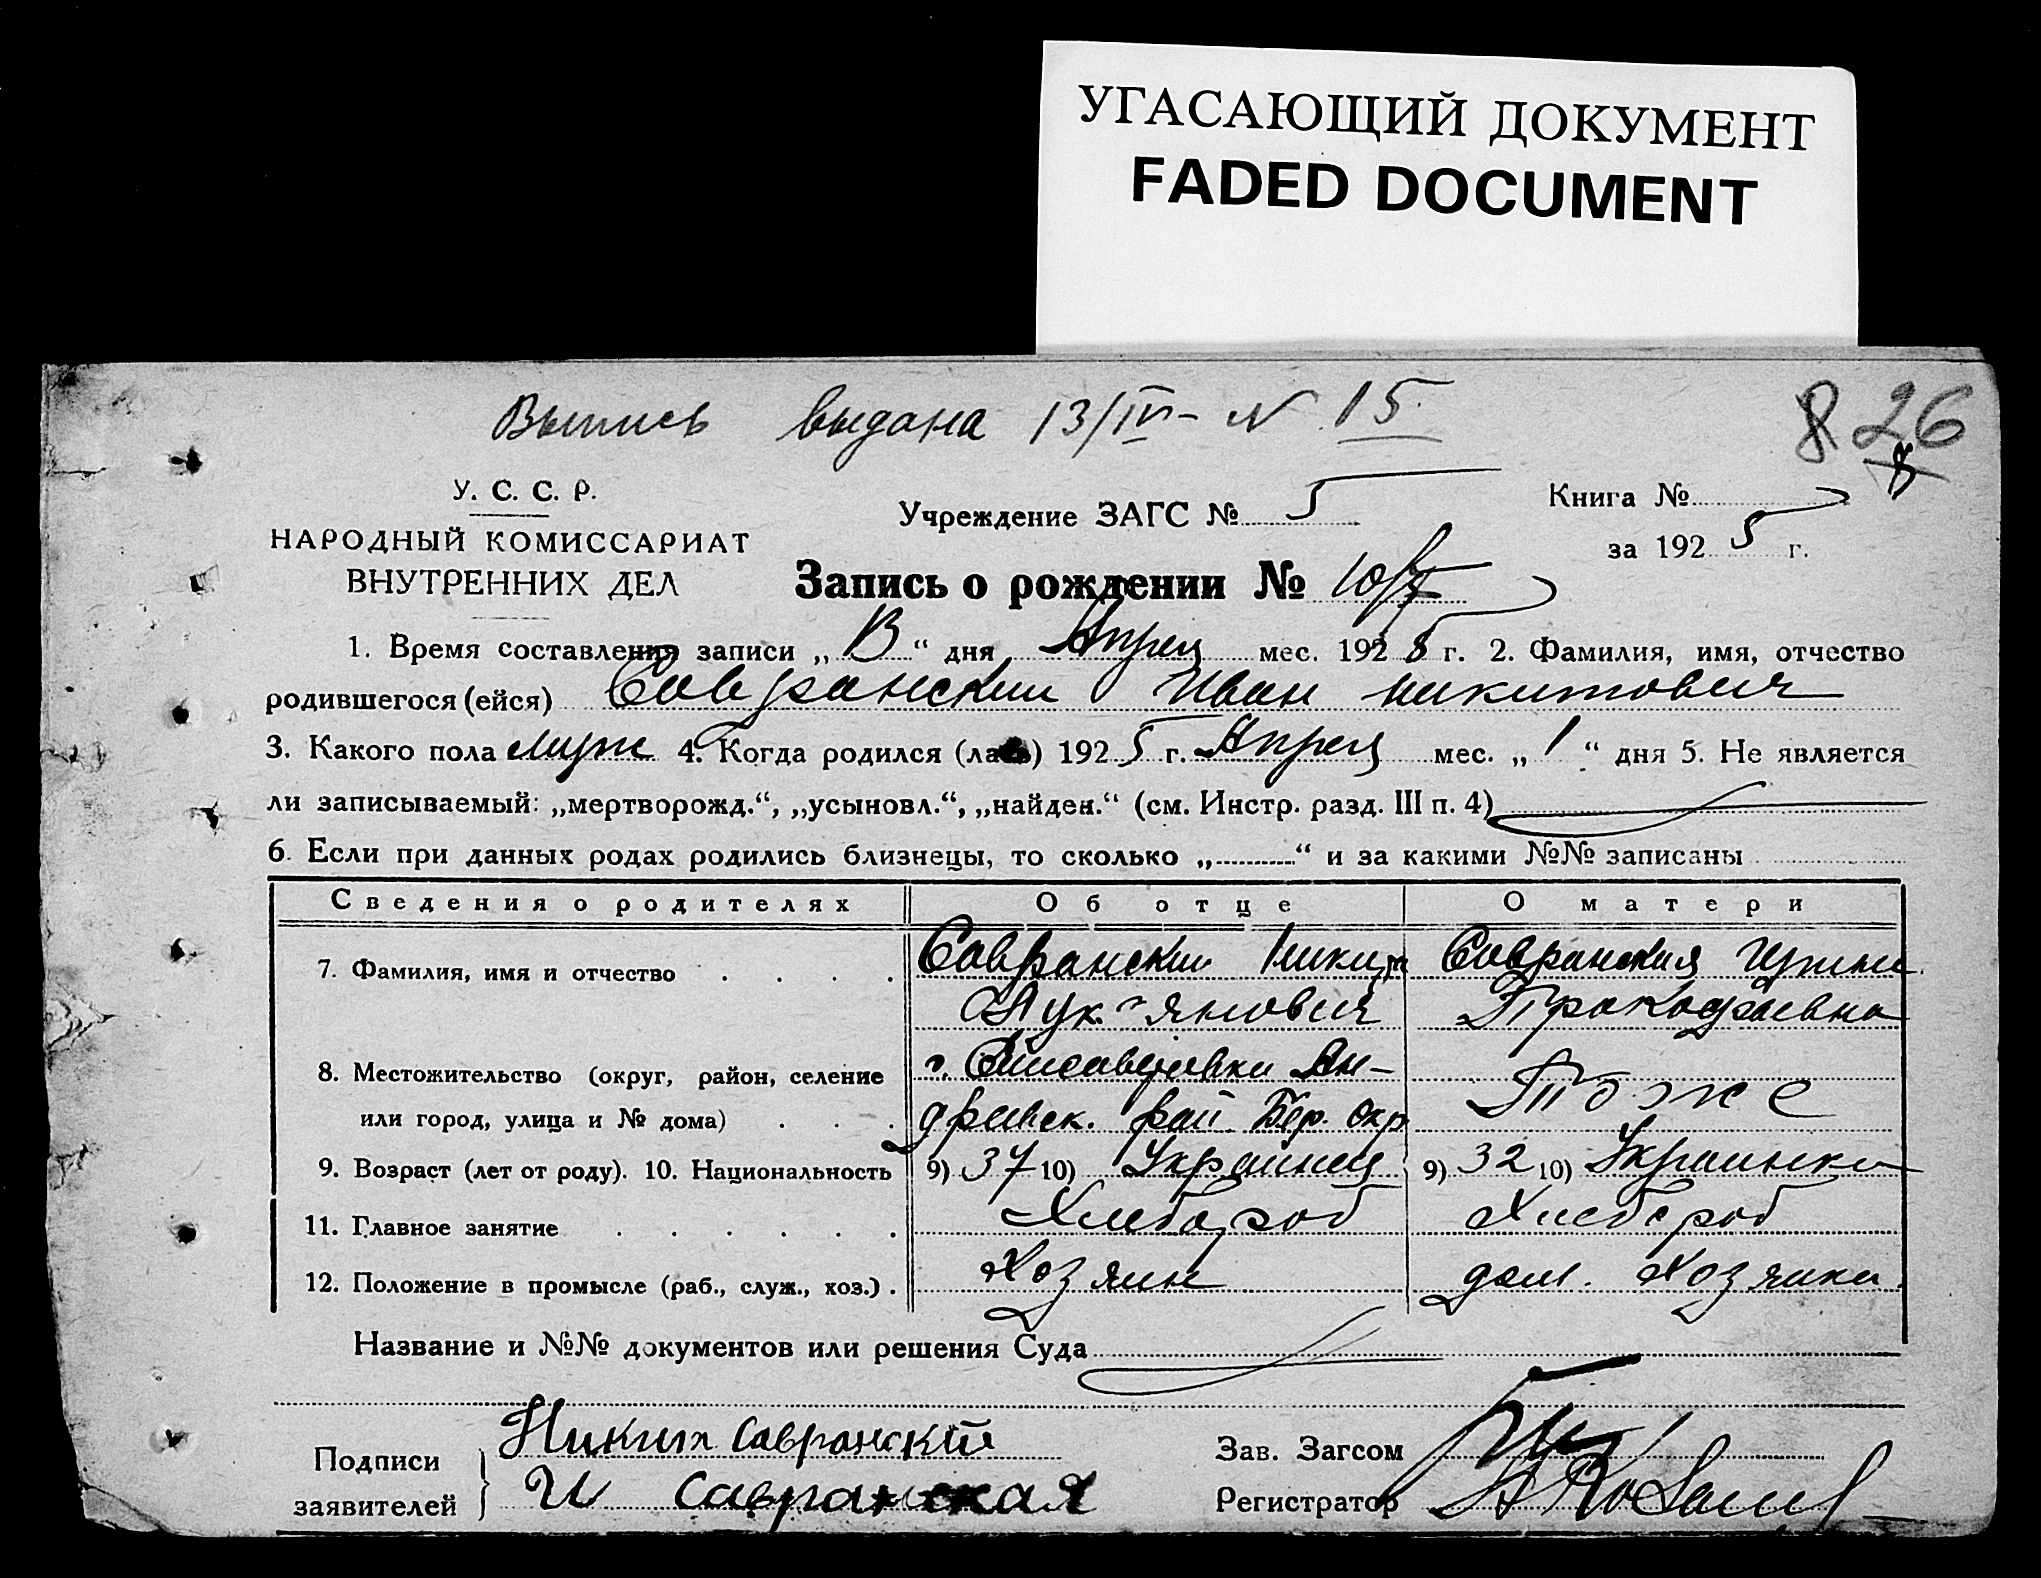 УГАСАЮЩИЙ ДОКУМЕНТ
FADED DOCUMENT
Выпись выдана 13/IV- N 15
26
У. С. С. Р.
НАРОДНЫЙ КОМИССАРИАТ
ВНУТРЕННИХ ДЕЛ
Учреждение ЗАГС № 5
Книга №
за 1925 г.
Запись о рождении № 10/
1. Время составления записи „13“ дня Апреля мес. 1925 г. 2. Фамилия, имя, отчество
родившегося (ейся) Савранский Иван Никитович
3. Какого пола муж 4. Когда родился (лась) 1925 г. Апреля мес. „1“ дня 5. Не является
ли записываемый: „мертворожд.“, „усыновл.“, „найден.“ (см. Инстр. разд. III п. 4)
6. Если при данных родах родились близнецы, то сколько „ “ и за какими №№ записаны
Сведения о родителях Об отце О матери
7. Фамилия, имя и отчество Савранский Никита Савранская
Лукьянович Прокофьевна
8. Местожительство (округ, район, селение
или город, улица и № дома)
с. Елисаветовка Ан-
дриевск. рай. Бер. окр
Тоже
9. Возраст (лет от роду). 10. Национальность 9) 37 10) Украинец 9) 32 10) Украинка
11. Главное занятие Хлебороб Хлебороб
12. Положение в промысле (раб., служ., хоз.) Хозяин дом. хозяйка.
Название и №№ документов или решения Суда
Подписи
заявителей
Никита Савранский
И Савранская
Зав. Загсом
Регистратор